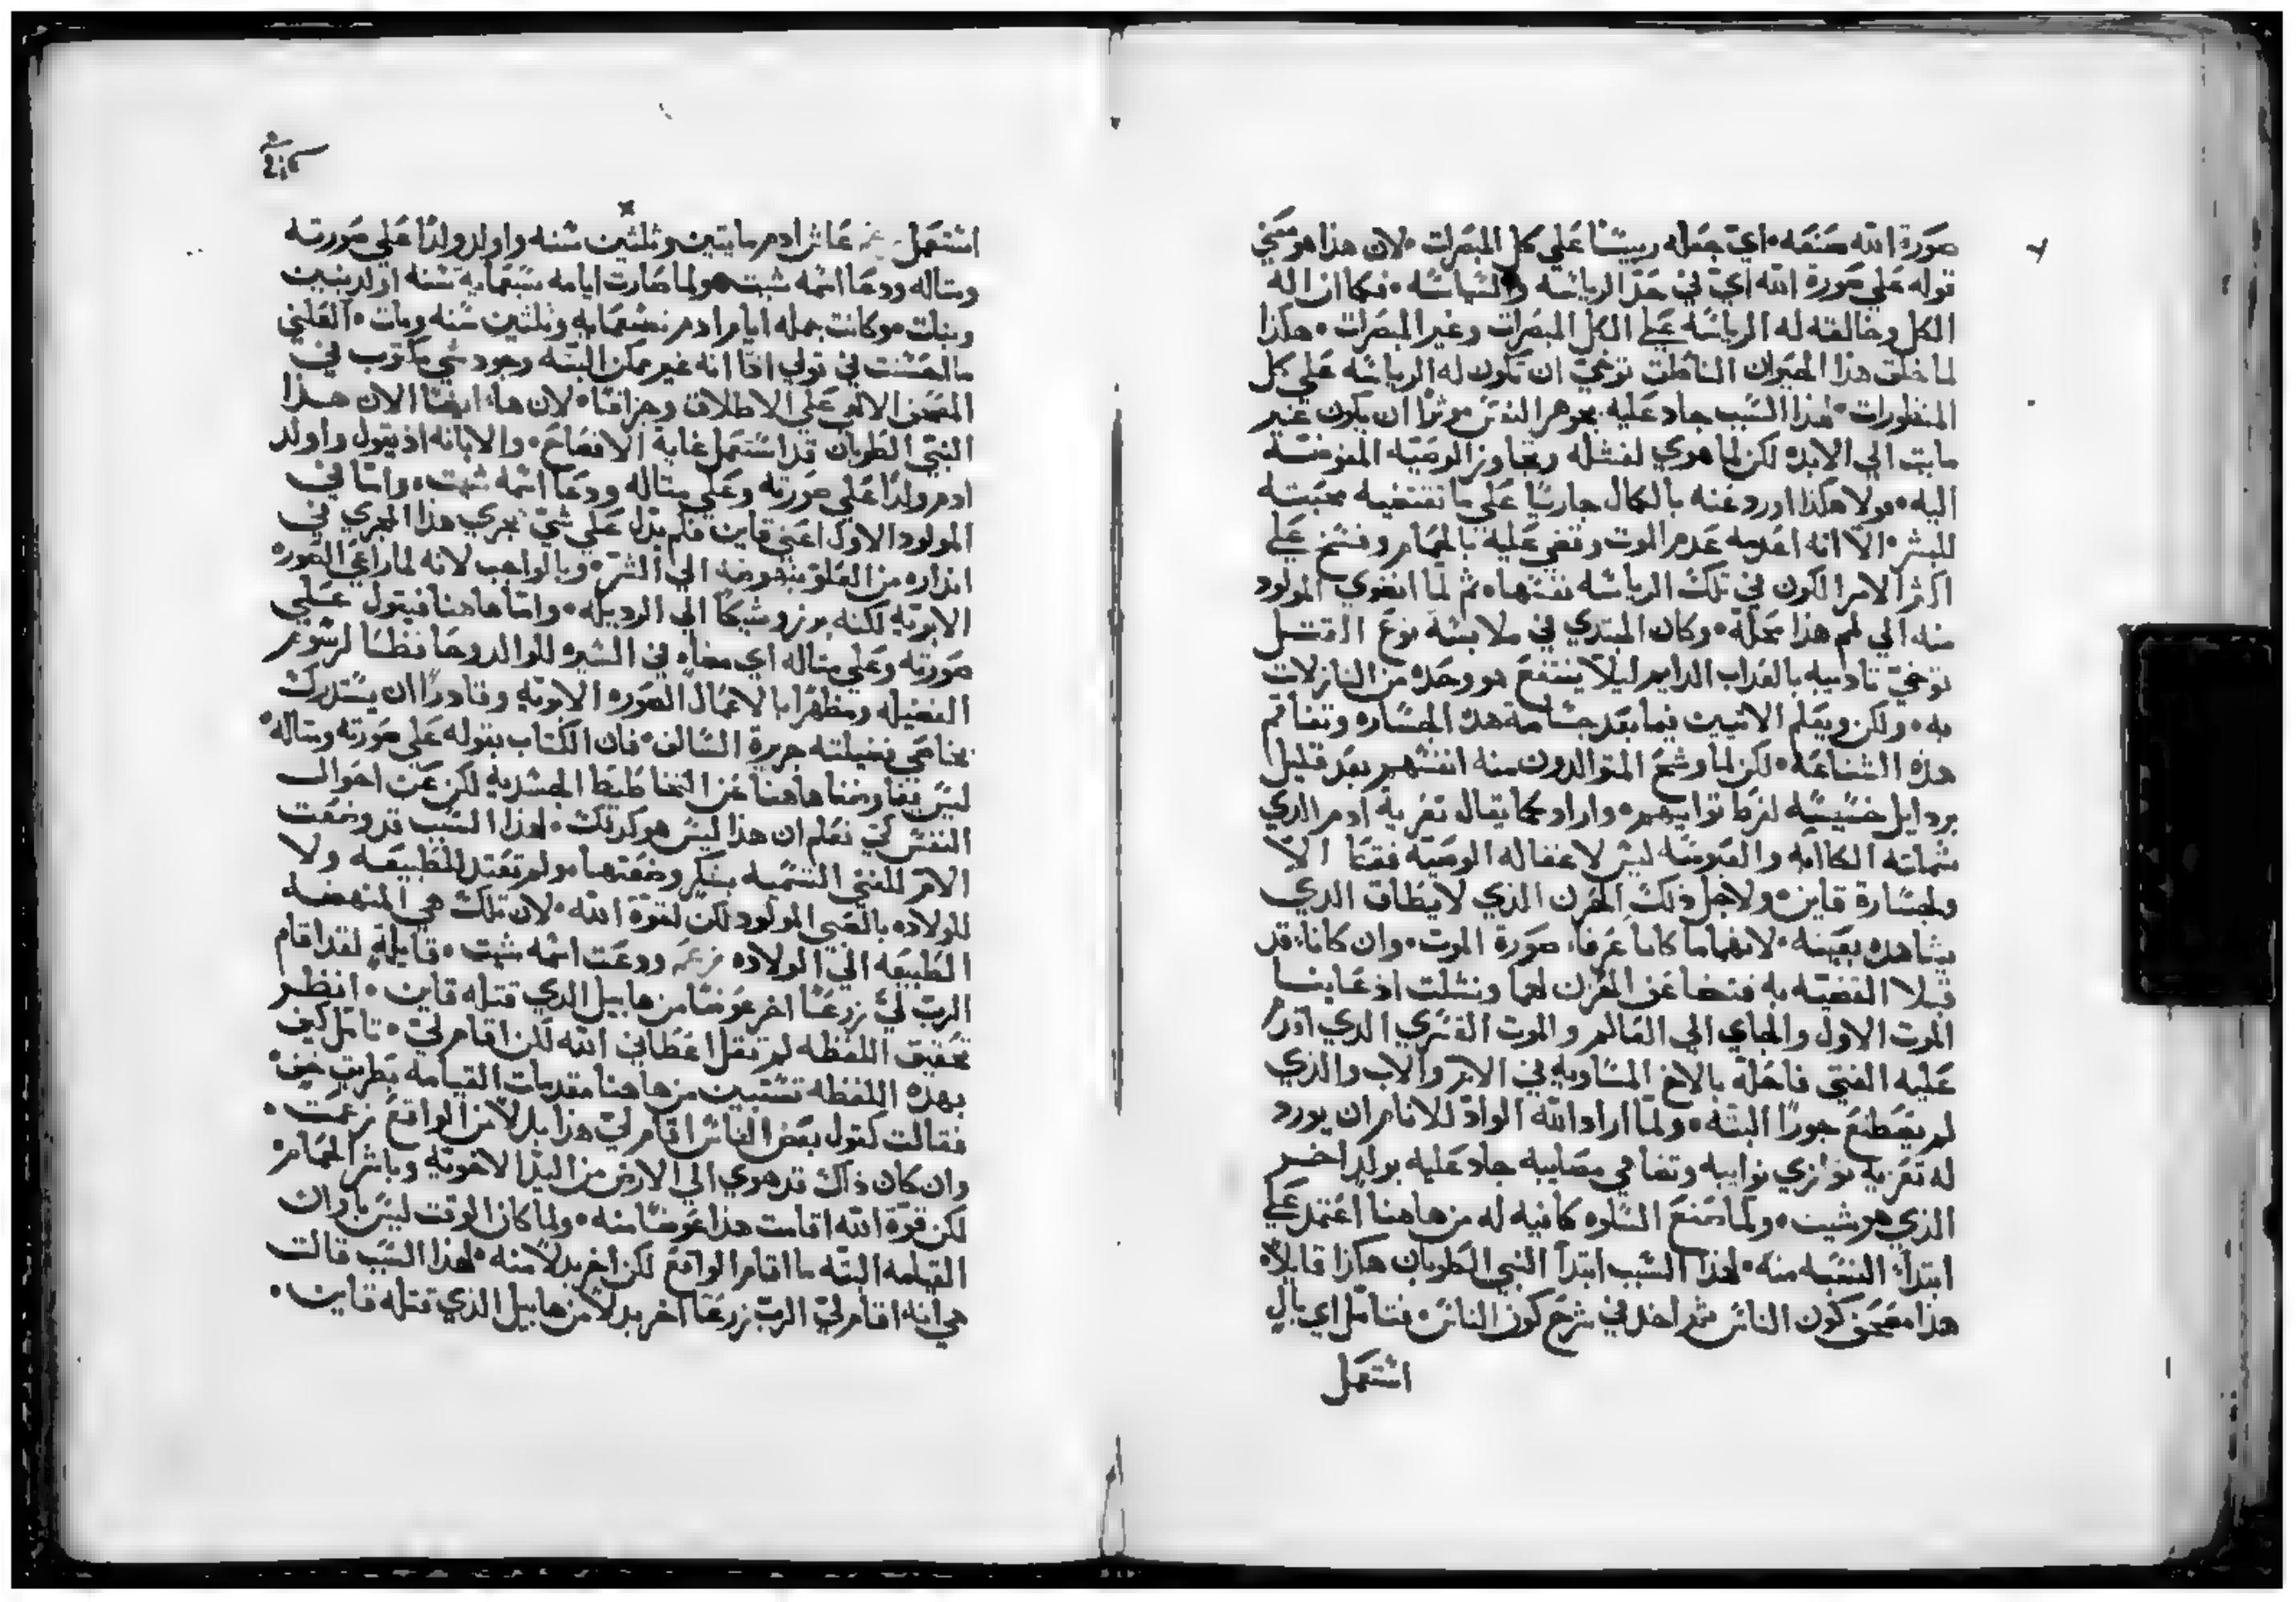 صورة الله صنعه • اي جعله رييسًا علي كل المبصرات • لان هذا هو معني
قوله علي صورة الله اي في حد الرياسه والسياسه • فكما ان اله
الكل وخالقه له الرياسه علي الكل المبصرات وغير المبصرات • هكذا
لما خلق هذا الحيوان الناطق توخيّ ان تكون له الرياسه علي كل
المنظورات • لهذا السبب جاد عليه بجوهر النفس موثرًا ان يكون غير
مايت الي الابد • لكن لما هوي لفشله وتجاوز الوصيه المفوضه
اليه • ولا هكذا اورد عنه بالكمال جاريًا علي ما تقتضيه محبته
للبشر • الا انه اعدمه عدم الموت وقضي عليه بالحمام وفسخ علي
اكثر الامر الكون في تلك الرياسه نفسها • ثم لما انغوي المولود
منه الي لمم هذا محله • وكان المبتدي في ملابسة نوع القتل
توخيّ تاديبه بالعذاب الدايم ليلا ينتفع هو وحده من النازلات
به • ولكن ويعلم الاتيين فيما بعد جسامة هذه الجساره وتفاقم
هذه الشناعه • لكن لما وشح المتوالدون منه انفسهم بعد قليل
بردايل خسيسه لفرط توانيهم • واراد كما يقال تعزية ادم الذي
شملته الكاابه والعبوسه ليس لاغفاله الوصيه فقط الا
ولجسارة قاين • ولاجل ذلك الحزن الذي لا يطاق الذي
يشاهده بعينه • لانهما ما كانا عرفا صورة الموت • وان كانا قد
قبلا القضيه به فتضاعف الحزن لهما ونسلت اذ عاينا
الموت الاول والجاي الي العالم والموت القسري الذي اقدم
عليه الفتي فاحله بالاخ المساويه في الام والاب والذي
لم يصطنع جورًا البته • ولما اراد الله الواد للانام ان يورد
له تعزيه توازي نوايبه وتضاهي مصايبه جاد عليه بولد اخر
الذي هو شيت • ولما صنع السلوه كافيه له من هاهنا اعتمد علي
ابتداء النسبه منه • لهذا السبب ابتدا النبي الطوبان هكذا قايلا •
هذا مصحف كون الناس ثم اخذ في شرح كون الناس • فتامل اي بال
استعمل
استعمل زعم عاش ادم مايتين وثلثين سنه واولد ولدًا علي صورته
ومثاله ودعا اسمه شيت • ولما صارت ايامه سبعمايه سنه اولد بنين
وبنات • وكانت جمله ايام ادم تسعمايه وثلثين سنه ومات • العلني
ما احسنت في قولي انفًا انه غير ممكن البته وجود شي مكتوب في
المصحف الالهي علي الاطلاق وجزافًا • لان ها ايضًا الان هذا
النبي الطوبان قد استعمل غاية الافصاح • والابانه اذ يقول واولد
ادم ولدًا علي صورته وعلي مثاله ودعا اسمه شيت • واما في
المولود الاول اعني قاين فلم يدل علي شي يجري هذا المجري في
انذاره من العلو بنهوضه الي الشر • وبالواجب لانه لما راعي الصوره
الابويه لكنه برز وشيكًا الي الرديله • واما هاهنا فيقول علي
صورته وعلي مثاله اي مضاهٍ في السيره للوالد وحافظًا لرسوم
الفضيله ومظهرًا بالاعمال الصوره الابويه وقادرًا ان يستدرك
بخاصي فضيلته جريرة السالف • فان الكتاب بقوله علي صورته ومثاله
ليس يفاوضنا هاهنا عن التخاطيط الجسديه لكن عن احوال
النفس كي نعلم ان هذا ليس هو كذلك • لهذا السبب قد وضعت
الام للفتي التسميه بشكر وضعتها • ولم تعتد للطبيعه ولا
للولاده بالصبي المولود لكن لقوة الله • لان تلك هي المنهضه
الطبيعه الي الولاده زعم ودعت اسمه شيت • قايلة لقد اقام
الرب لي زرعًا اخر عوضًا من هابيل الذي قتله قاين • انظر
تحقيق اللفظه لم تقل اعطاني الله لكن اقام لي • تامل كيف
بهذه اللفظه تستبين من هاهنا مقدمات القيامه بطريق خفي
فقالت كقول بعض الناس اقام لي هذا بدلا من الواقع زعمت •
وان كان ذاك قد هوي الي الارض من اليد الاخويه وباشر الحمام •
لكن قوة الله اقامت هذا عوضًا منه • ولما كان الوقت ليس باوان
القيامه البته ما اقام الواقع لكن اخر بدلا منه • لهذا السبب قالت
هي انه اقام لي الرب زرعًا اخر بدلا من هابيل الذي قتله قاين •